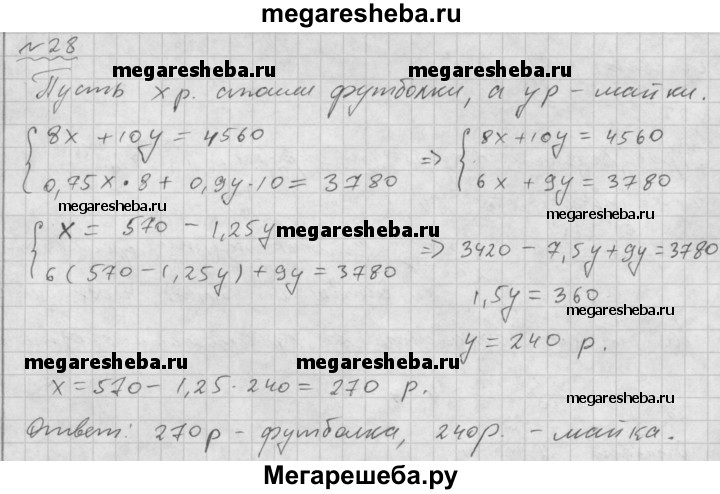 megaresheba.ru
№28
megaresheba.ru megaresheba.ru
Пусть x р. стоили футболки, а y р – майки.
8x + 10y = 4560 => 8x + 10y = 4560
0,75x • 8 + 0,9y · 10 = 3780 6x + 9y = 3780
megaresheba.ru megaresheba.ru
x = 570 – 1,25y megaresheba.ru
6(570 – 1,25y) + 9y = 3780 => 3420 – 7,5y + 9y = 3780
1,5y = 360
megaresheba.ru
y = 240 р.
megaresheba.ru megaresheba.ru
x = 570 – 1,25 · 240 = 270 р.
megaresheba.ru
Ответ: 270р – футболка, 240р. – майка.
Мегарешеба.ру